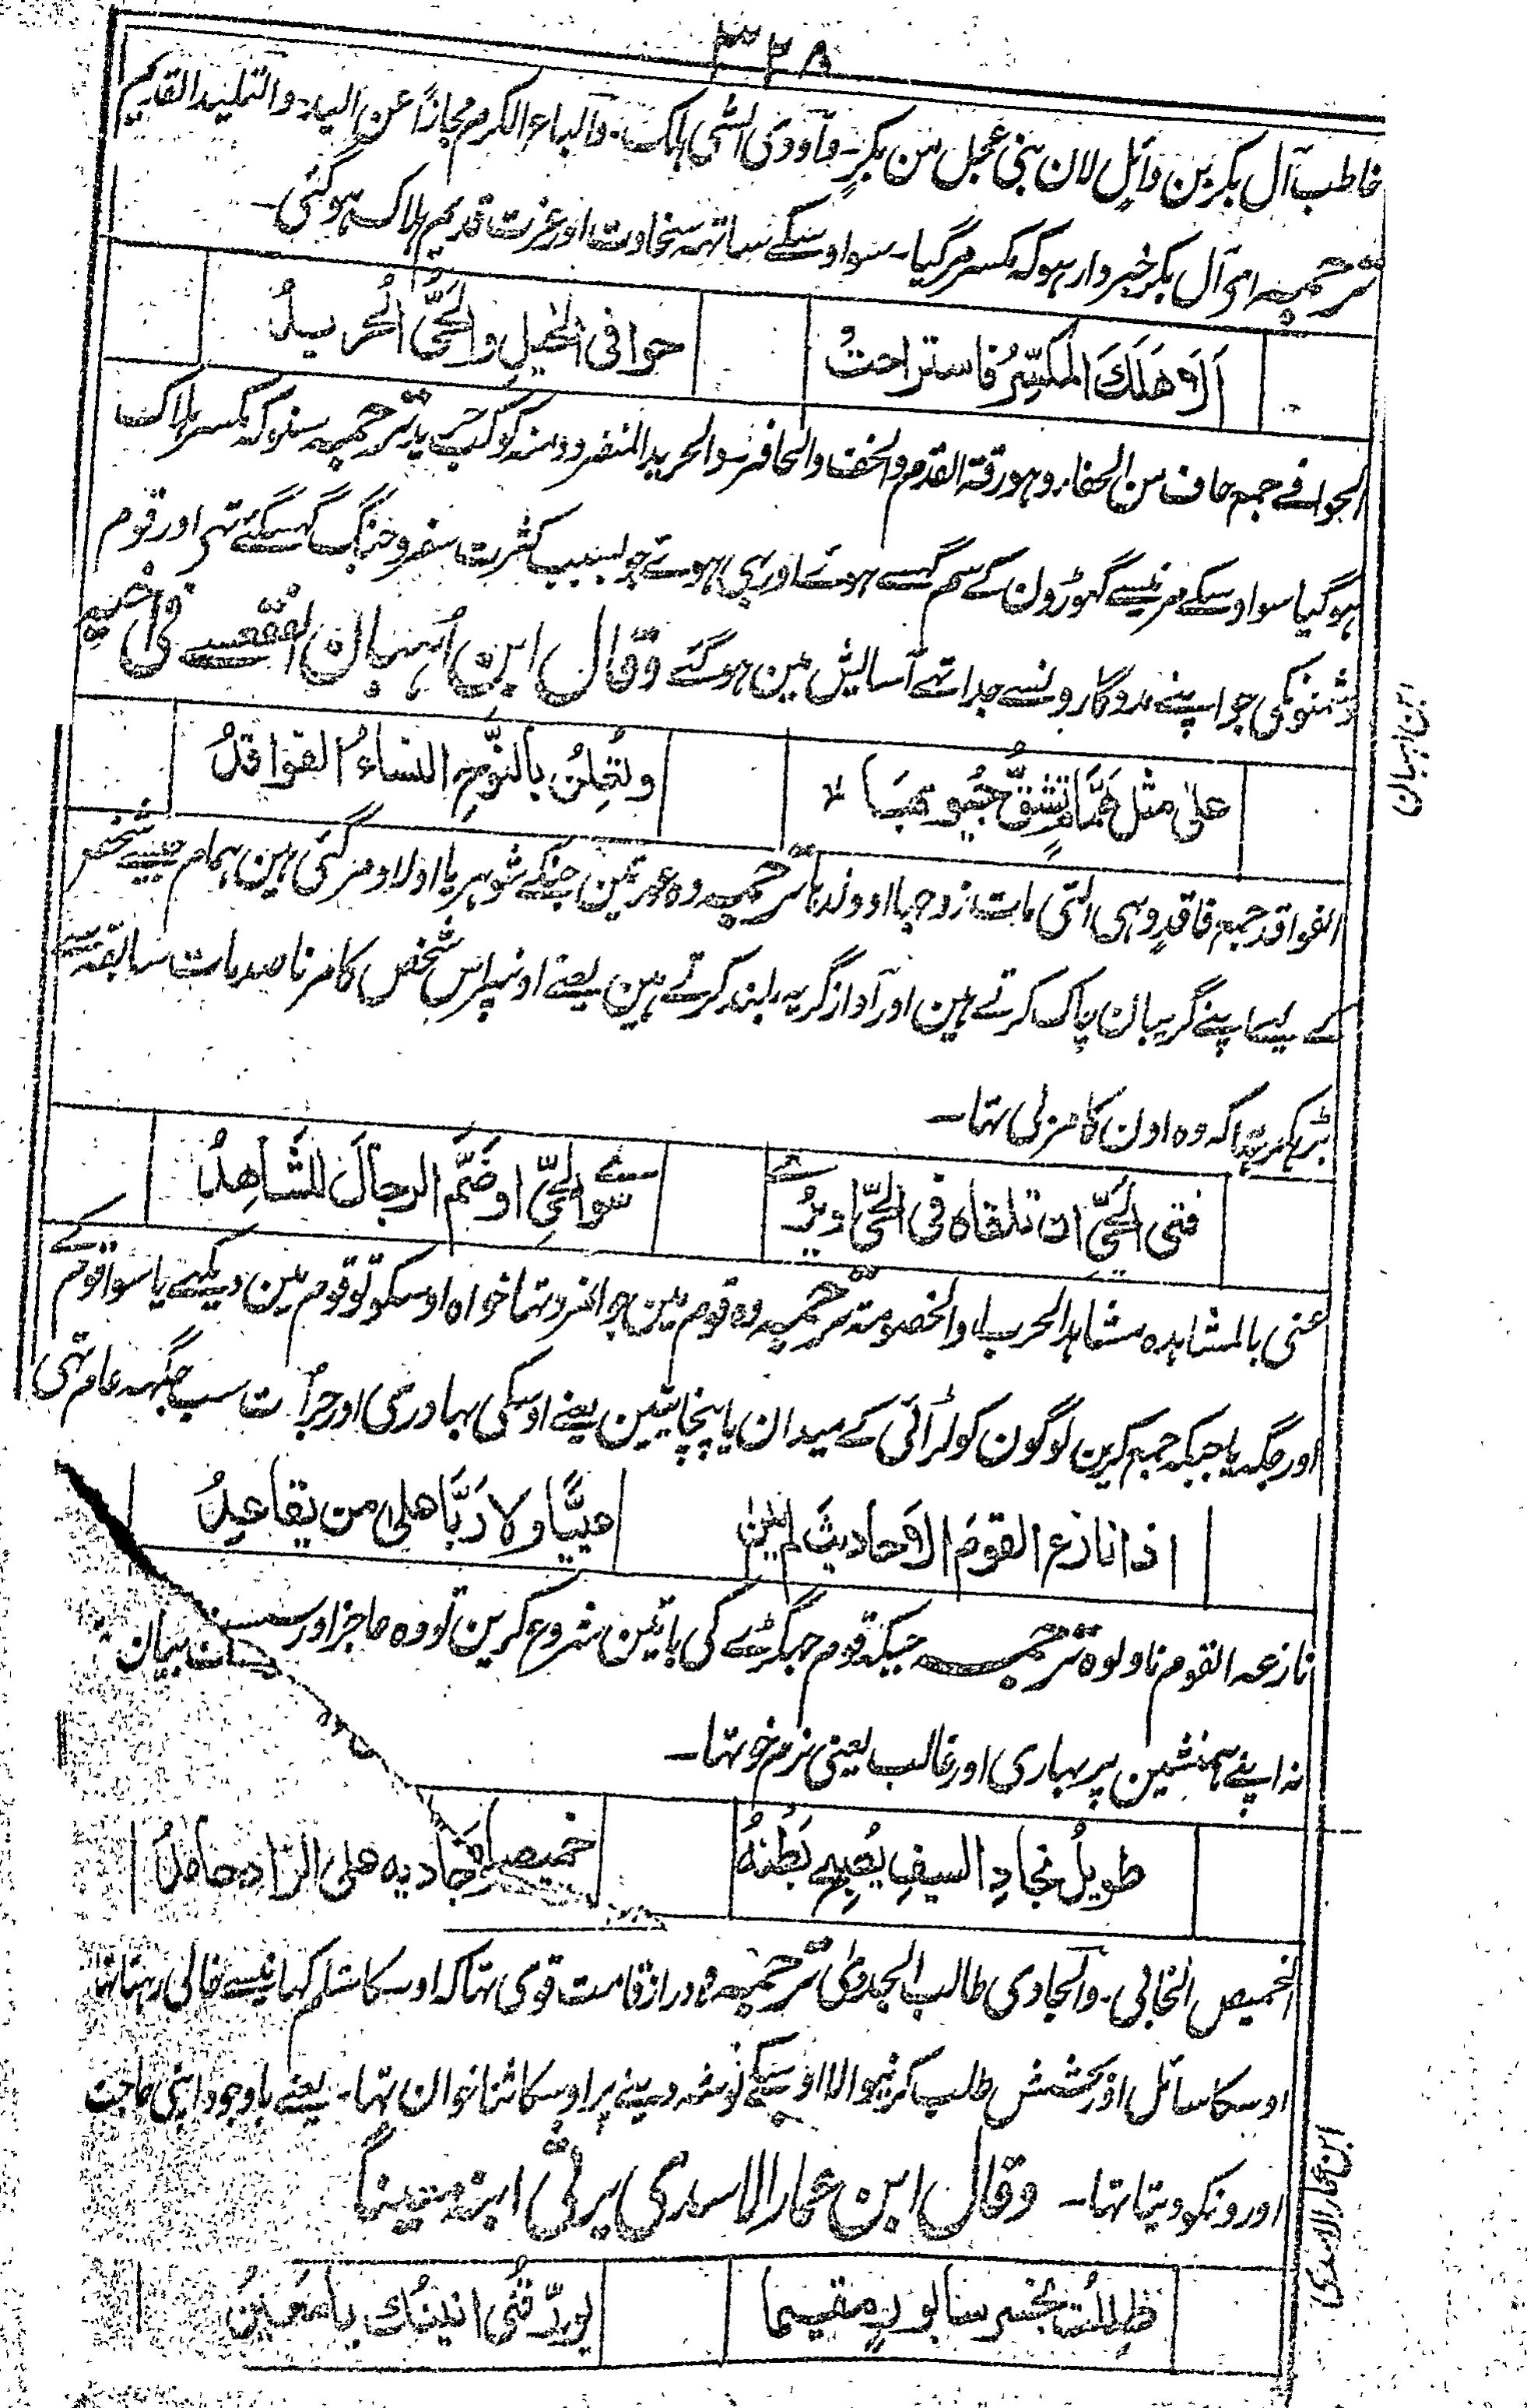 ٣٢٨
خاطب آل بکر بن وائل لان بنی عجل من بکر۔ واودی الشی ہلک۔ والباع الکرم مجازاً عن الید۔ والتلید القدیم
ترجمہ ای آل بکر خبردار ہو کہ مکسر مر گیا۔ سو اوسکے ساتھہ سخاوت اور عزت قدیم ہلاک ہو گئی۔
اَلَا هَلَكَ المُكَسِّرُ فاستراحتْ
حوافی الخیلِ والحَیُّ الحَریدُ
الحوافے جمع حاف من الحفا۔ وہو رقۃ القدم والخف والحافر۔ والحرید المنفرد ترجمہ سنو کہ مکسر ہلاک
ہو گیا سو اوسکے مرنیسے گہوڑون کے سم گہسے ہوئے اور ہی ہوئے جو بسبب کثرت سفر و جنگ گہس گئے تہی اور قوم
دشمنونکی جو اپنے مددگارونسے جدا تہے آسایش مین ہو گئے وقال ابن اُہبان الفقعسے فی اخیہ
ابن اہبان
علیٰ مثل هَمَّامٍ تَشُقُّ جُیُوبَهَا
وتُعلِنُ بالنَّوحِ النساءُ الفواقدُ
الفواقد جمع فاقد وہی التی مات زوجہا او ولدہا ترجمہ وہ عورتین جنکے شوہر یا اولاد مر گئی ہین ہمام جیسے شخص
کے لیے اپنے گریبان چاک کرتے ہین اور آواز گریہ بلند کرتے ہین یعنے اونپر اس شخص کا مرنا صدمات سابقہ سے
بڑہکر ہوا کہ وہ اون کا مربی تہا۔
فتی الحَیِّ ان تلقاہ فی الحَیِّ اویُرٰے
سوی الحَیِّ اوضَمَّ الرجالَ المَشَاهِدُ
عنی بالمشاہدہ مشاہد الحرب او الخصومۃ ترجمہ وہ قوم مین جوانمرد تہا خواہ اوسکو تو قوم مین دیکہے یا سوا قوم کے
اور جگہ یا جبکہ جمع کرین لوگون کو لڑائی کے میدان یا پنچایتین یعنے اوسکی بہادری اور جرأت سب جگہہ عام تہی
اذا نازع القومَ الاحادیثَ لم یکن
عییًّا ولا رَبًّا علیٰ من یقاعدُ
نازعہ القوم ناولوہ ترجمہ جبکہ قوم جہگڑے کی باتین شروع کرین تو وہ عاجز اور سست بیان
نہ اپنے ہمنشین پر بہاری اور غالب یعنی نرم خو تہا۔
طویلُ نجادِ السیفِ یُصبِحُ بَطْنُهُ
خمیصًا وجادیه علی الزاد حامدُ
الخمیص الخالی۔ والجادی طالب الجدوی ترجمہ وہ دراز قامت قوی تہا کہ اوسکا شکم کہانیسے خالی رہتا تہا
اوسکا سائل اور بخشش طلب کرنیوالا اوسکے توشہ دینے پر اوسکا ثنا خوان تہا۔ یعنے باوجود اپنی حاجت
اورونکو دیتا تہا۔ وقال ابن عمار الاسدی یرثی ابنہ معینا
ابن عمار الاسدی
ظللتُ بخسر سابورٍ مقیما
یورِّقُنی انینُكَ یا مَعینُ